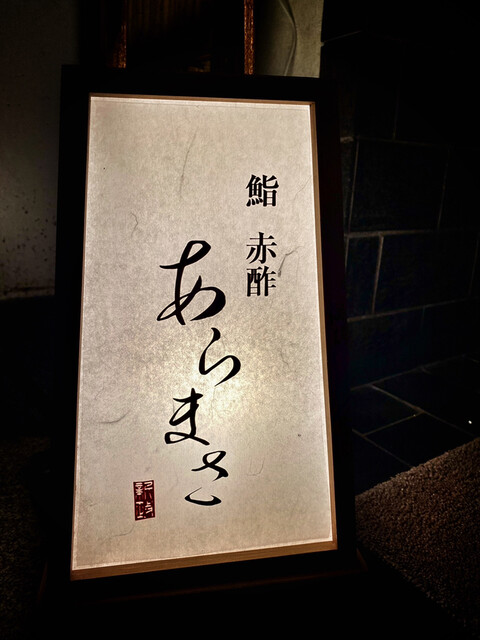 鮨 赤酢
あらまさ